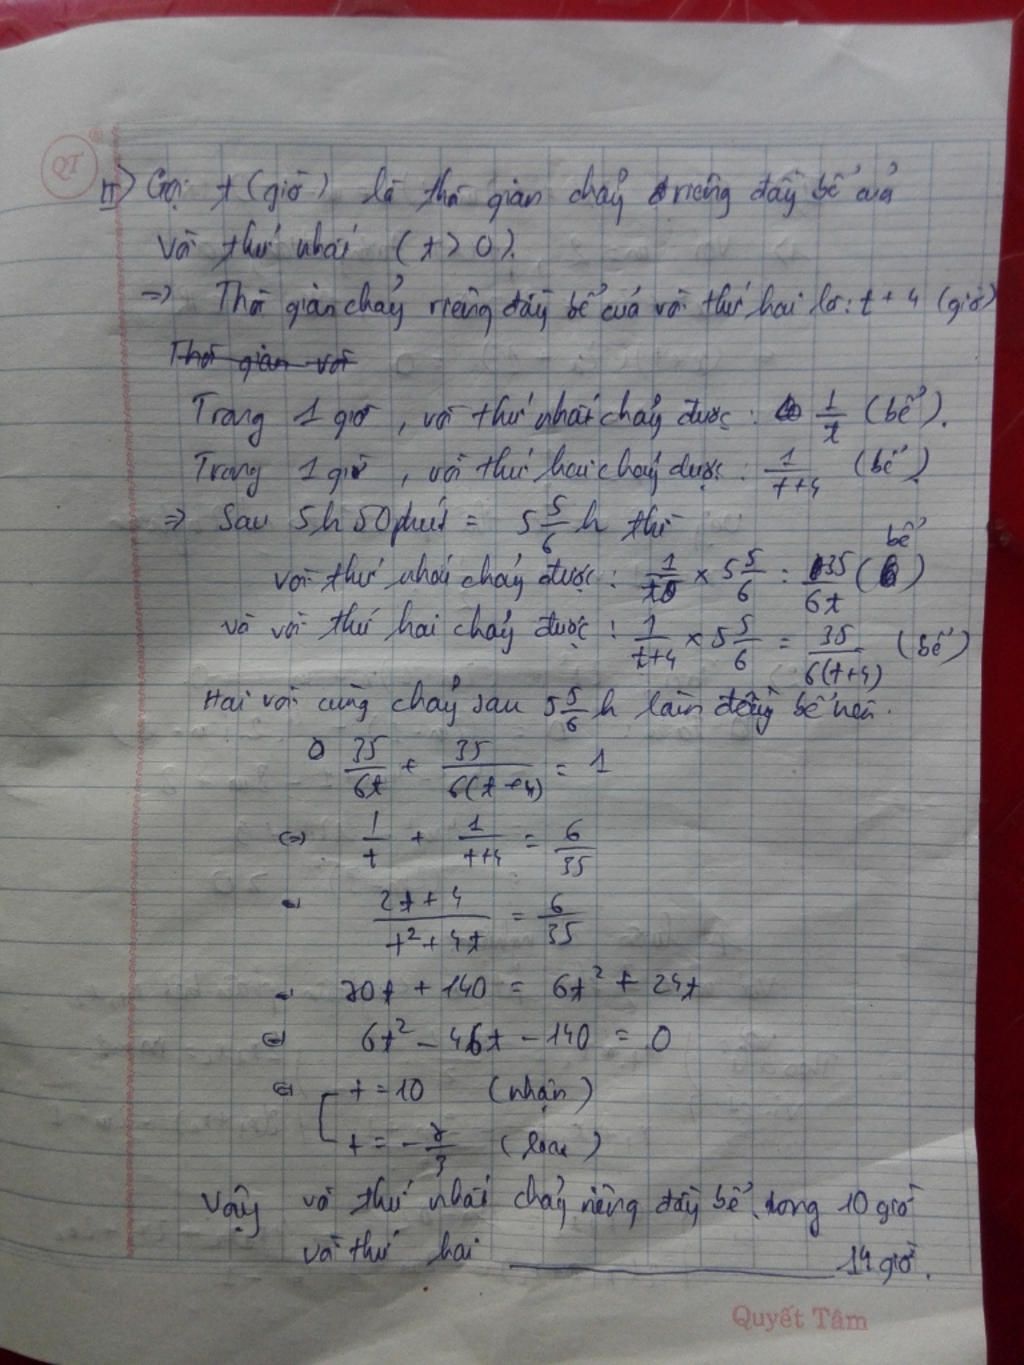 QT
II) Gọi t (giờ) là thời gian chảy riêng đầy bể của
vòi thứ nhất (t > 0).
=> Thời gian chảy riêng đầy bể của vòi thứ hai là: t + 4 (giờ)
Thời gian vòi
Trong 1 giờ, vòi thứ nhất chảy được: 1/t (bể).
Trong 1 giờ, vòi thứ hai chảy được: 1/(t+4) (bể)
=> Sau 5h 50 phút = 5 5/6 h thì
vòi thứ nhất chảy được: 1/t × 5 5/6 = 35/6t (bể)
và vòi thứ hai chảy được: 1/(t+4) × 5 5/6 = 35/6(t+4) (bể)
Hai vòi cùng chảy sau 5 5/6 h làm đầy bể nên.
35/6t + 35/6(t+4) = 1
<=> 1/t + 1/(t+4) = 6/35
<=> (2t+4)/(t²+4t) = 6/35
<=> 70t + 140 = 6t² + 24t
<=> 6t² - 46t - 140 = 0
<=> [ t = 10 (nhận)
t = -7/3 (loại)
Vậy vòi thứ nhất chảy riêng đầy bể trong 10 giờ
vòi thứ hai ______ 14 giờ.
Quyết Tâm